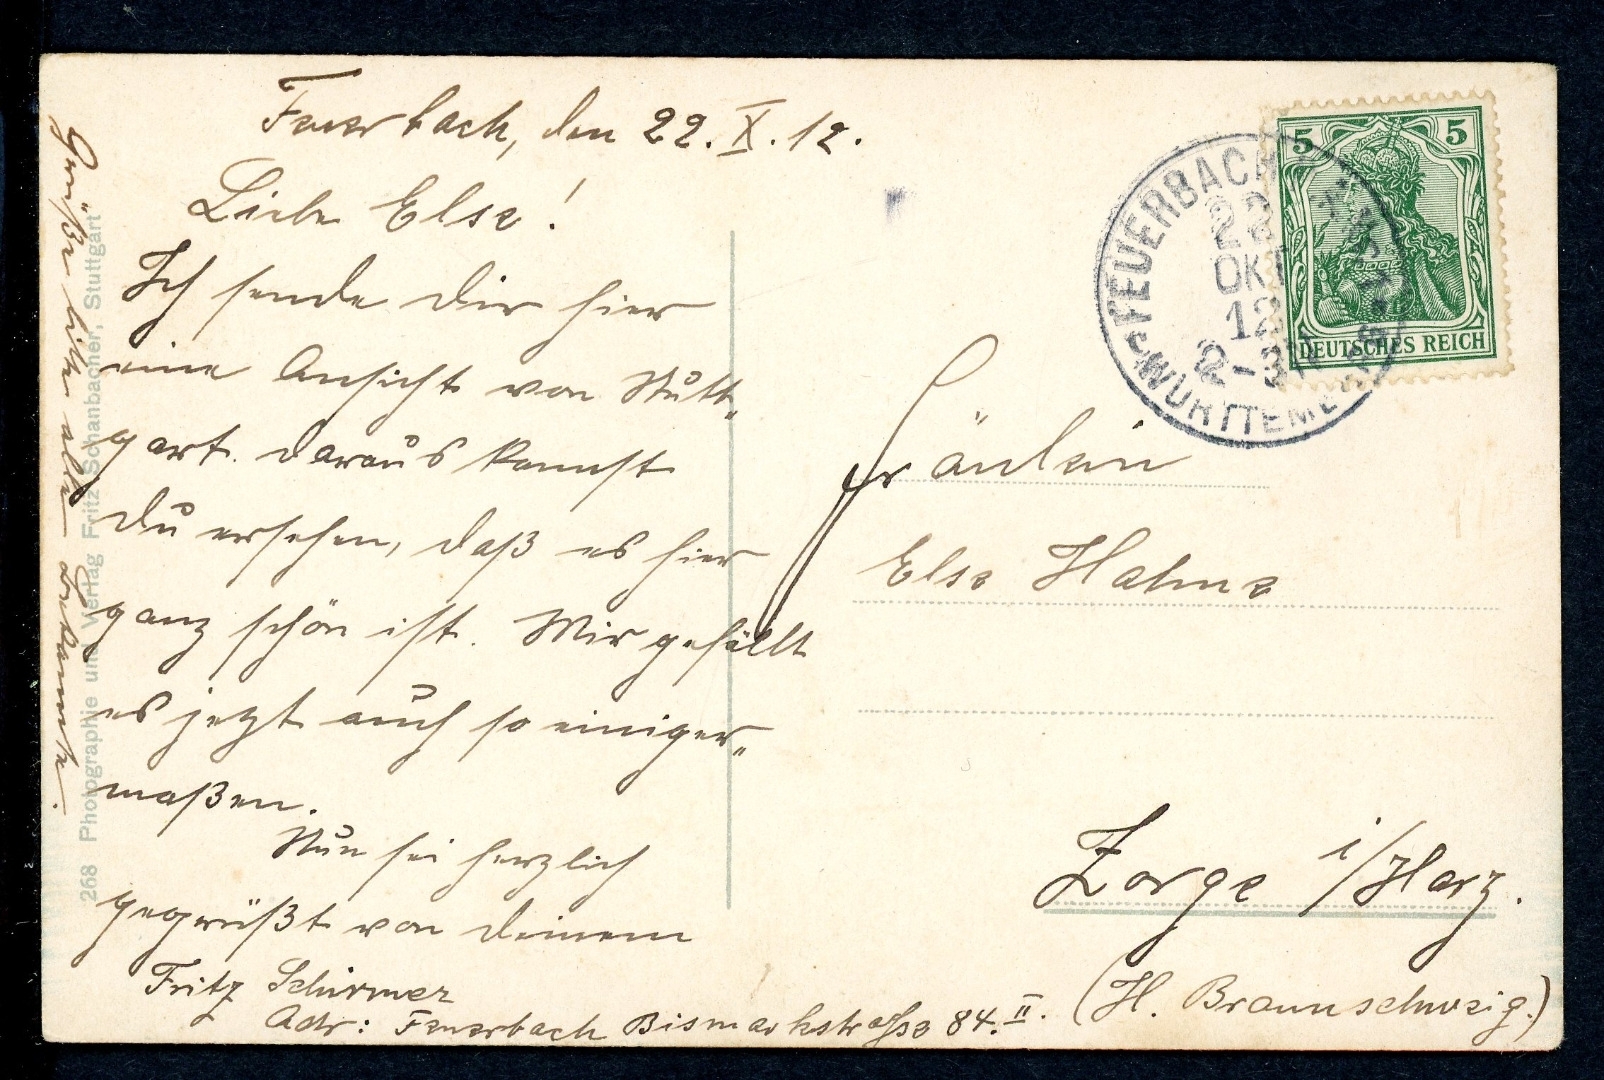 Feuerbach, den 22. X. 12.
Liebe Else!
Ich sende dir hier
eine Ansicht von Stutt„
gart. daraus kannst
Du ersehen, daß es hier
ganz schön ist. Mir gefällt
es jetzt auch so einiger„
maßen.
Nun sei herzlich
gegrüßt von deinem
Fritz Schirmer
Adr: Feuerbach Bismarkstrasse 84. II.
Grüße bitte alle Bekannte.
268 Photographie und Verlag Fritz Schanbacher, Stuttgart
5 5
DEUTSCHES REICH
FEUERBACH
22
OKT
12
2-3
WÜRTTEMBERG
Fräulein
Else Hahne
Zorge i/Harz.
(H. Braunschweig.)